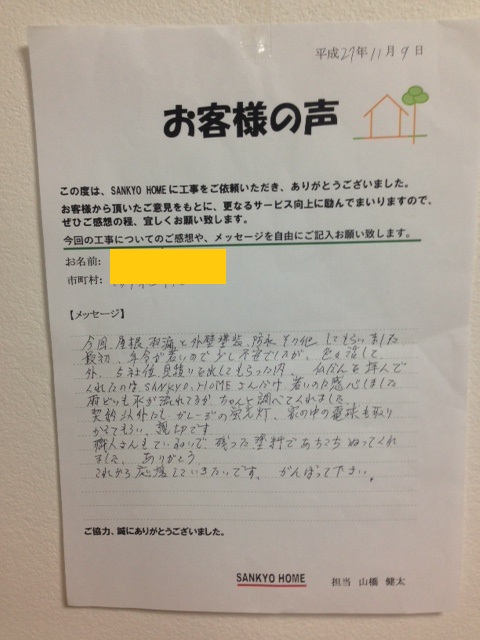 平成27年11月9日
お客様の声
この度は、SANKYO HOMEに工事をご依頼いただき、ありがとうございました。
お客様から頂いたご意見をもとに、更なるサービス向上に励んでまいりますので、
ぜひご感想の程、宜しくお願い致します。
今回の工事についてのご感想や、メッセージを自由にご記入お願い致します。
お名前:
市町村:
【メッセージ】
今回、屋根雨漏と外壁塗装、防水その他してもらいました
最初、年令が若いので少し不安でしたが、
外、5社位見積りを出してもらった内、
くれたのは、SANKYO,HOMEさんだけ、若いのに感心しました
雨どいも水が流れてるか、ちゃんと調べてくれました。
契約以外にも、ガレージの蛍光灯、家の中の電球も取り
かえてもらい、親切です
職人さんもていねいで、残った塗料であちこちぬってくれ
ました、ありがとう、
これから応援していきたいです、がんばって下さい。
ご協力、誠にありがとうございました。
SANKYO HOME 担当 山橋 健太